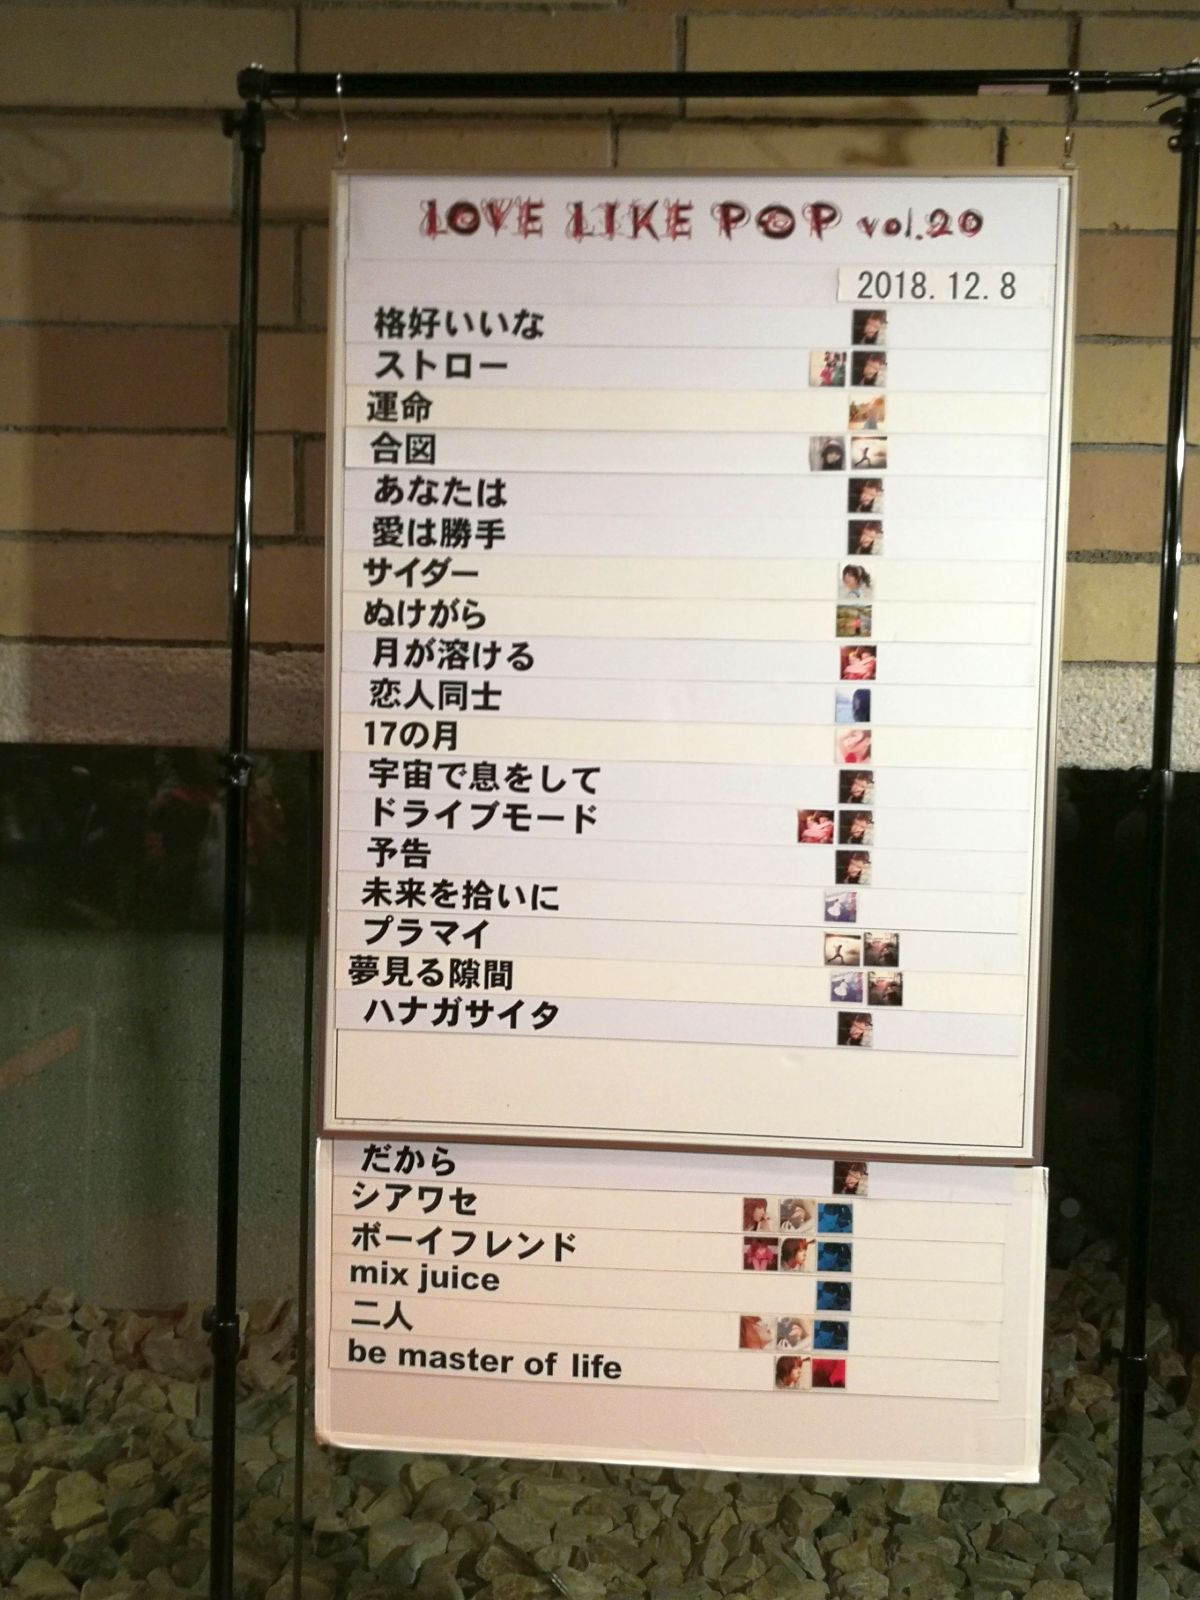 LOVE LIKE POP vol.20
2018.12.8
格好いいな
ストロー
運命
合図
あなたは
愛は勝手
サイダー
ぬけがら
月が溶ける
恋人同士
17の月
宇宙で息をして
ドライブモード
予告
未来を拾いに
プラマイ
夢見る隙間
ハナガサイタ
だから
シアワセ
ボーイフレンド
mix juice
二人
be master of life